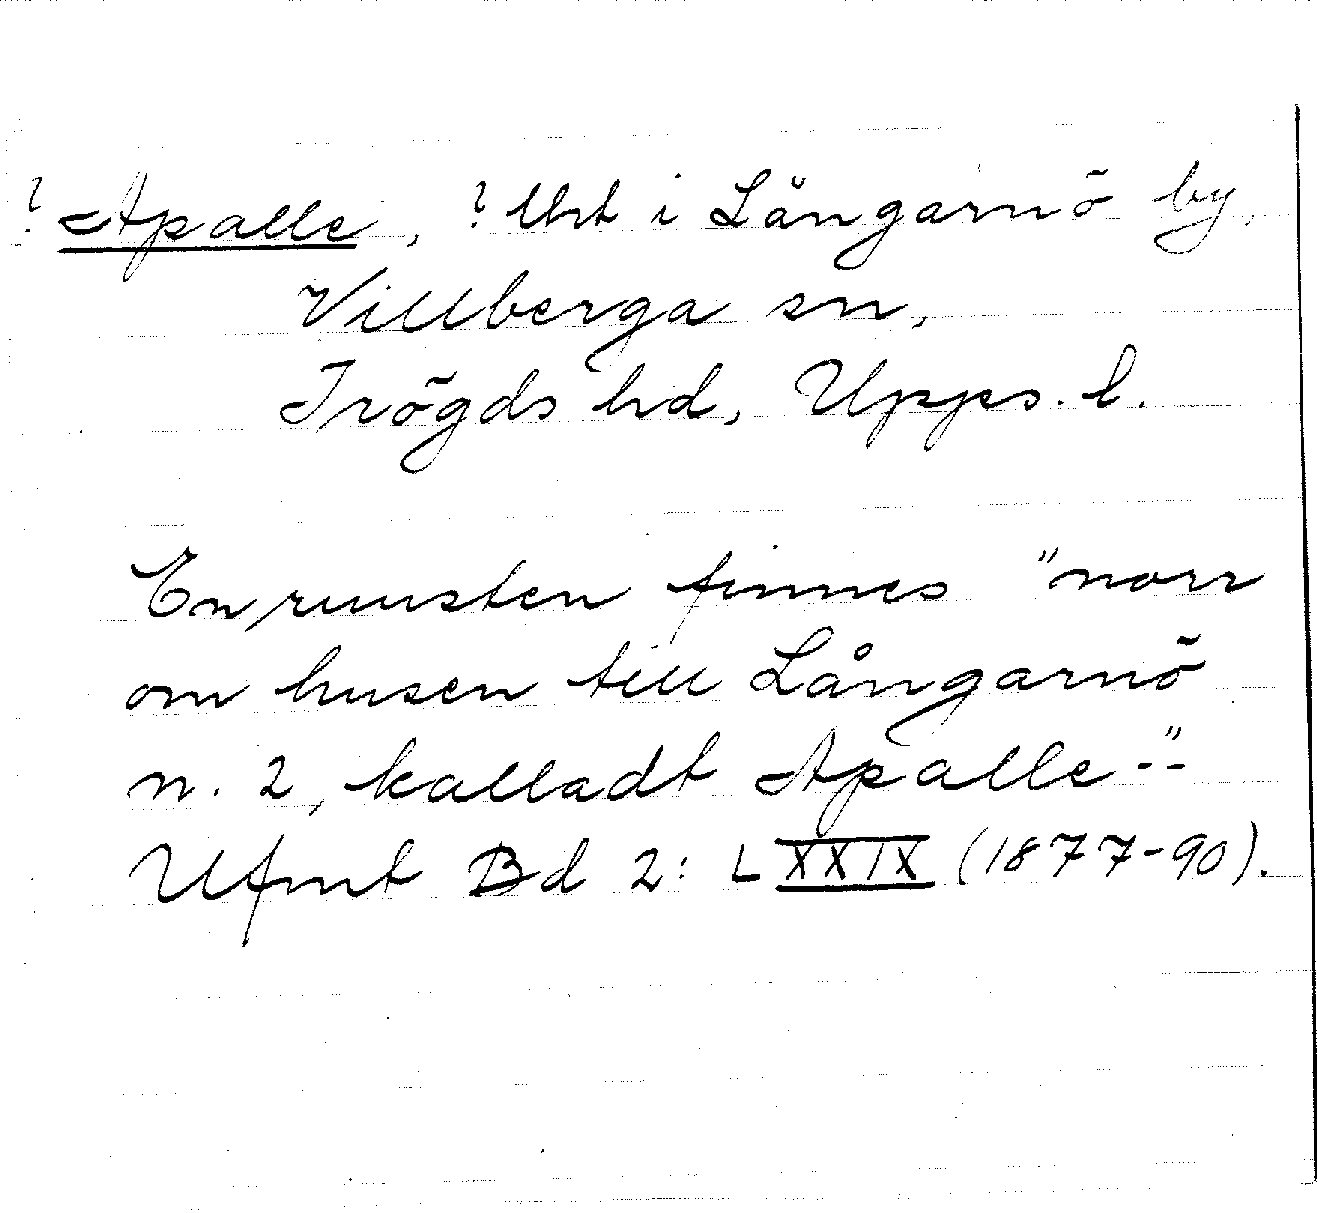 ? Apalle, ? Ubt i Långarnö by,
Villberga sn,
Trögds hd, Upps. l.
En runsten finnes "norr
om husen till Långarnö
n. 2, kalladt Apalle--"
Ufmt Bd 2: LXXIX (1877-90).